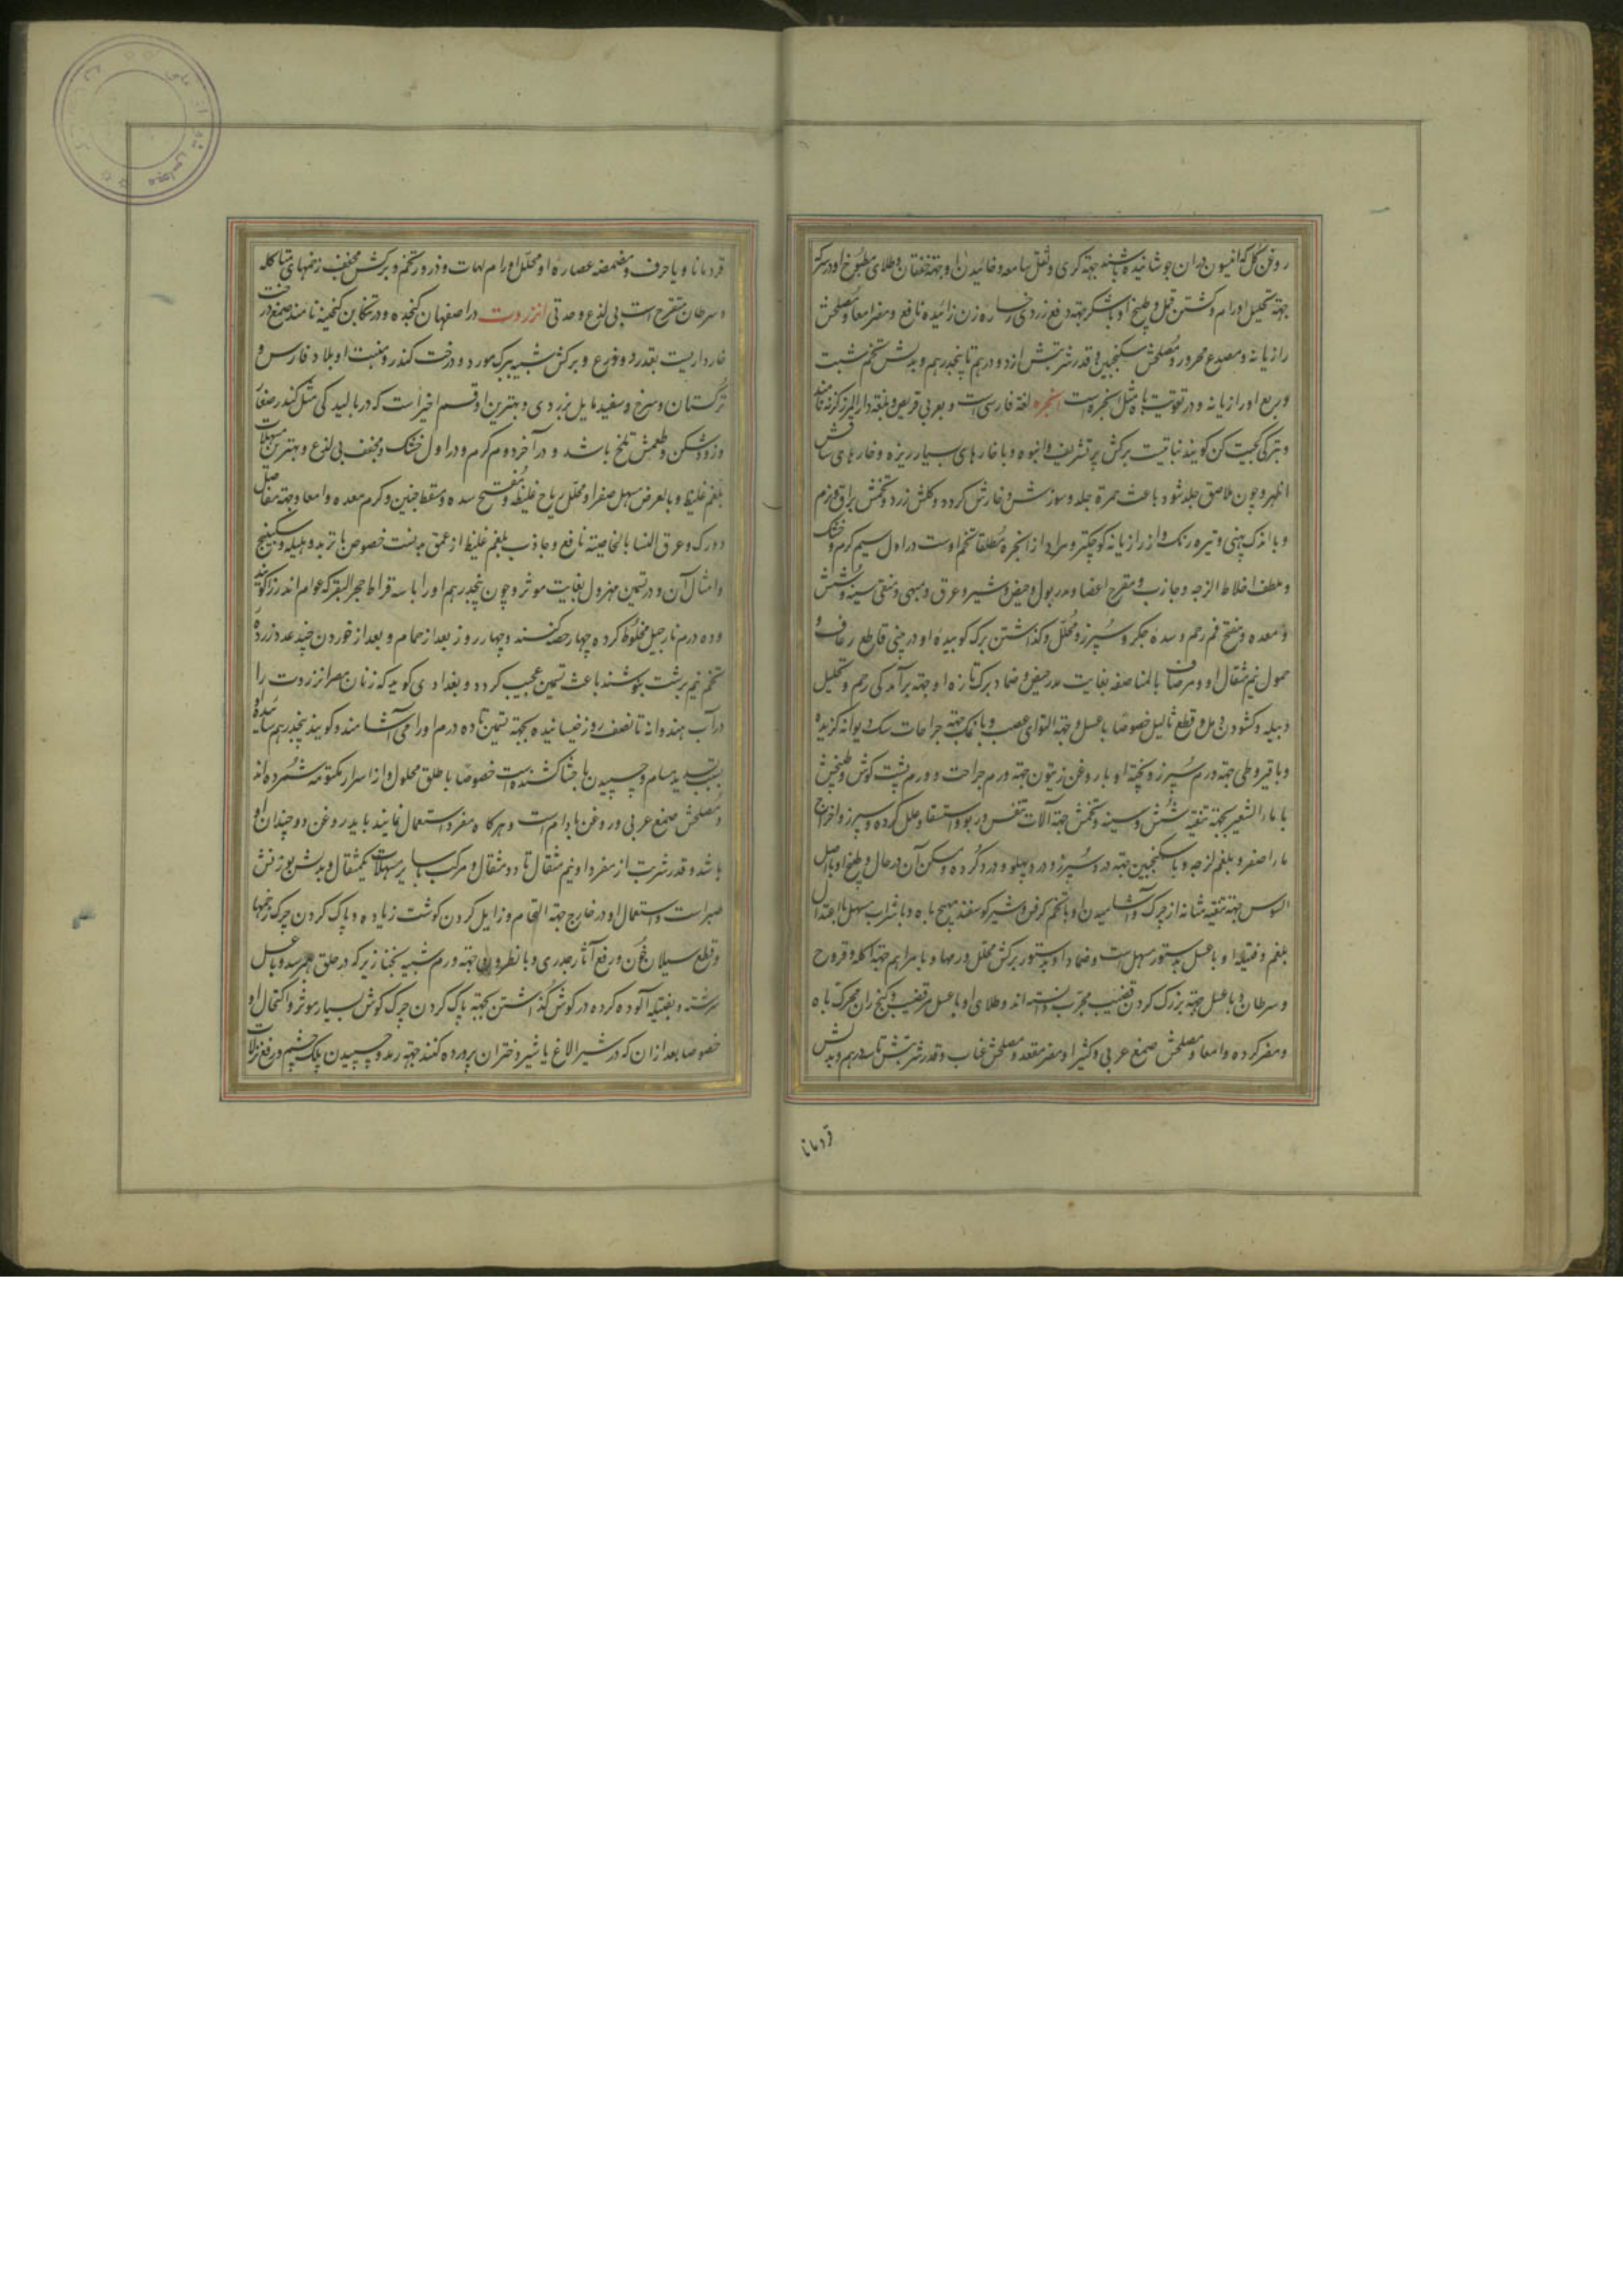 روغن گل که افیون در ان جوشانیده باشند جهة کری و ثقل سامعه و خائیدن او جهة خفقان و طلای مطبوخ او در سرکه
جهة تحلیل اورام و کشتن قمل و طبیخ او با شکر جهة رفع زردی رخساره زن زائیده نافع و مضر امعا و مصلحش
رازیانه و مصدع محرور و مصلحش سکنجبین و قدر شربتش از دو درهم تا پنجدرهم و بدلش تخم شبت
و ربع او رازیانه و در تقویت باه مثل انجره است انجره لغة فارسی است و بعربی قریص و بلغة دارالمرز کزنه نامند
و بترکی کجیت کن کویند نباتیست برکش پر تشریف و انبوه و با خارهای بسیار ریزه و خارهای ساقش
اظهر و چون ملاصق جلد شود باعث حمرة جلد و سوزش و خارش کردد و کلش زرد و تخمش براق و نرم
و با اندک پهنی و تیره رنک و از رازیانه کوچکتر و مراد از انجره مطلقا تخم اوست در اول سیم کرم و خشک
و ملطف اخلاط لزجه و جاذب و مقرح اعضا و مدر بول و حیض و شیر و عرق و مبهی و منقی سینه و شش
و معده و مفتح فم رحم و سده جکر و سپرز و محلل و کذاشتن برک کوبیده او در بینی قاطع رعاف و
حمول نیم مثقال او و مرصاف بالمناصفه بغایت مدر حیض و ضماد برک تازه او جهة برآمدکی رحم و تحلیل
دبیله و کشودن دمل و قطع ثالیل خصوصا با عسل و جهة التوای عصب و با نمک جهة جراحات سک دیوانه کزیده
و با قیروطی جهة ورم سپرز و پخته او با روغن زیتون جهة ورم جراحت و ورم پشت کوش و طبیخش
با ماء الشعیر بجهة تنقیه شش و سینه و تخمش جهة آلات تنفس و ربو و استسقا و علل کرده و سپرز و اخراج
ماء اصفر و بلغم لزجه و با سکنجبین جهة درد سپرز و درد پهلو و درد کرده و مسکن آن در حال و طبیخ او با اصل
السوس جهة تنقیه مثانه از چرک و آشامیدن او با تخم کرفس و شیر کوسفند مهیج باه و با شراب مسهل بااعتدال
بلغم و فتیله او با عسل بدستور مسهل است و ضماد او بدستور برکش محلل ورمها و با مراهم جهة اکله و قروح
و سرطان و با عسل جهة بزرک کردن قضیب مجرب دانسته اند و طلای او با عسل بر قضیب و کنج ران محرک باه
و مضر کرده و امعا و مصلحش صمغ عربی و کثیرا و مضر مقعد و مصلحش عناب و قدر شربتش تا سه درهم و بدلش
قردمانا
قردمانا و یا حرف و مضمضه عصاره او محلل اورام لهات و ذرور تخم و برکش مجفف زخمهای متاکله
و سرطان متقرح است بی لذع و حدتی انزروت در اصفهان کنجده و در تنکابن کنجیده نامند صمغ درخت
خارداریست بقدر دو ذرع و برکش شبیه ببرک مورد و درخت کندر و منبت او بلاد فارس و
ترکستان و سرخ و سفید مایل بزردی و بهترین او قسم اخیر است که در بالیدکی مثل کندر صغار
و زود شکن و طعمش تلخ باشد و در آخر دوم کرم و در اول خشک و مجفف بی لذع و بهترین مسهلات
بلغم غلیظ و بالعرض مسهل صفرا و محلل ریاح غلیظ و مفتح سده و مسقط جنین و کرم معده و امعا و جهة مفاصل
و ورک و عرق النسا بالخاصیته نافع و جاذب بلغم غلیظ از عمق بدنست خصوص با تربد و هلیله و سکبینج
و امثال آن و در تسمین مهزول بغایت موثر و چون پنجدرهم او را با سه قراط حجر البقر که عوام اندرزا کویند
و ده درم نارجیل مخلوط کرده چهار حصه کنند و چهار روز بعد از حمام و بعد از خوردن چند عدد زرده
تخم نیم برشت بنوشند باعث تسمین عجیب کردد و بغدادی کوید که زنان مصر انزروت را
در آب هندوانه تا نصف روز خیسانیده بجهة تسمین تا ده درم او را می آشامند و کویند پنجدرهم ساییده او
بسبب تسدید مسام و چسپیدن باحشا کشنده است خصوصا با طلق محلول و از اسرار مکتومه شمرده اند
و مصلحش صمغ عربی و روغن بادام است و هرکاه مفرد استعمال نمایند باید روغن دو چندان او
باشد و قدر شربت از مفرد او نیم مثقال تا دو مثقال و مرکب با سایر مسهلات یکمثقال و بدلش بوزنش
صبر است و استعمال او در خارج جهة التحام و زایل کردن کوشت زیاده و پاک کردن چرک زخمها
و قطع سیلان خون و رفع آثار جدری و با نطرون جهة ورم شبیه بخنازیر که در حلق بهم رسد و با عسل
سرشته و بفتیله آلوده کرده در کوش کذاشتن بجهة پاک کردن چرک کوش بسیار موثر و اکتحال او
خصوصا بعد از ان که در شیر الاغ یا شیر دختران پرورده کنند جهة رمد و چسپیدن پلک چشم و رفع نزلات